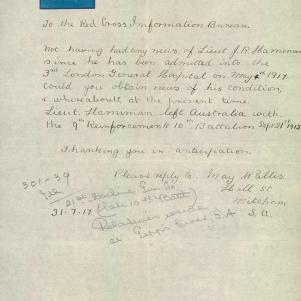 To the Red Cross Imformation Bureau.
Not having had any news of Lieut J R Harriman
since he has been admitted into the
3rd London General Hospital on May 4th 1917.
could you obtain news of his condition,
& whereabouts, at the present time.
Lieut. Harriman left Australia with
the 9th Reinforcements 10th Battalion Sept 21st 1915
Thanking you in anticipation.
Please reply to. May W Ellis
Hill St
Mitcham
S. A.
301-39
21st Machine Gun Co
(late 10th Batt)
31-7-17
Relatives reside
at Gepps Cross, S.A